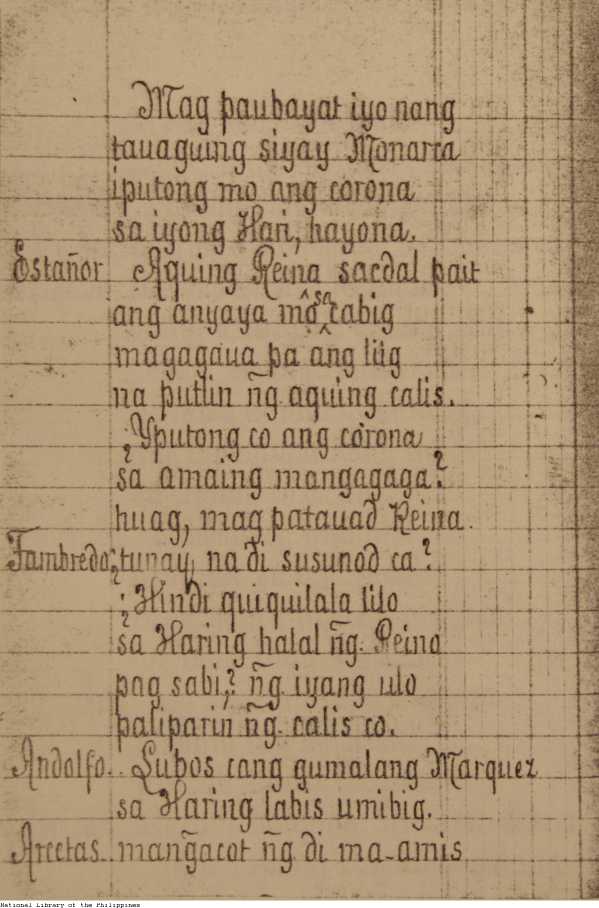 Mag paubayat iyo nang
tauaguing siyay Monarca
iputong mo ang corona
sa iyong Hari, hayona.
Estañor. Aquing Reina sacdal pait
ang anyaya mo sa tabig
magagaua pa ang liig
na putlin ñg aquing calis.
¿Yputong co ang corona
sa amaing mangagaga?
huag, mag patauad Reina.
Fambredo. ¿tunay, na di susunod ca?
¿Hindi quiquilala lilo
sa Haring halal ñg. Reino
pag sabi,? ñg. iyang ulo
paliparin ñg. calis co.
Andolfo. Lubos cang gumalang Marquez
sa Haring labis umibig.
Arcetas. mang̃acot ñg. di ma-amis
National Library of the Philippines